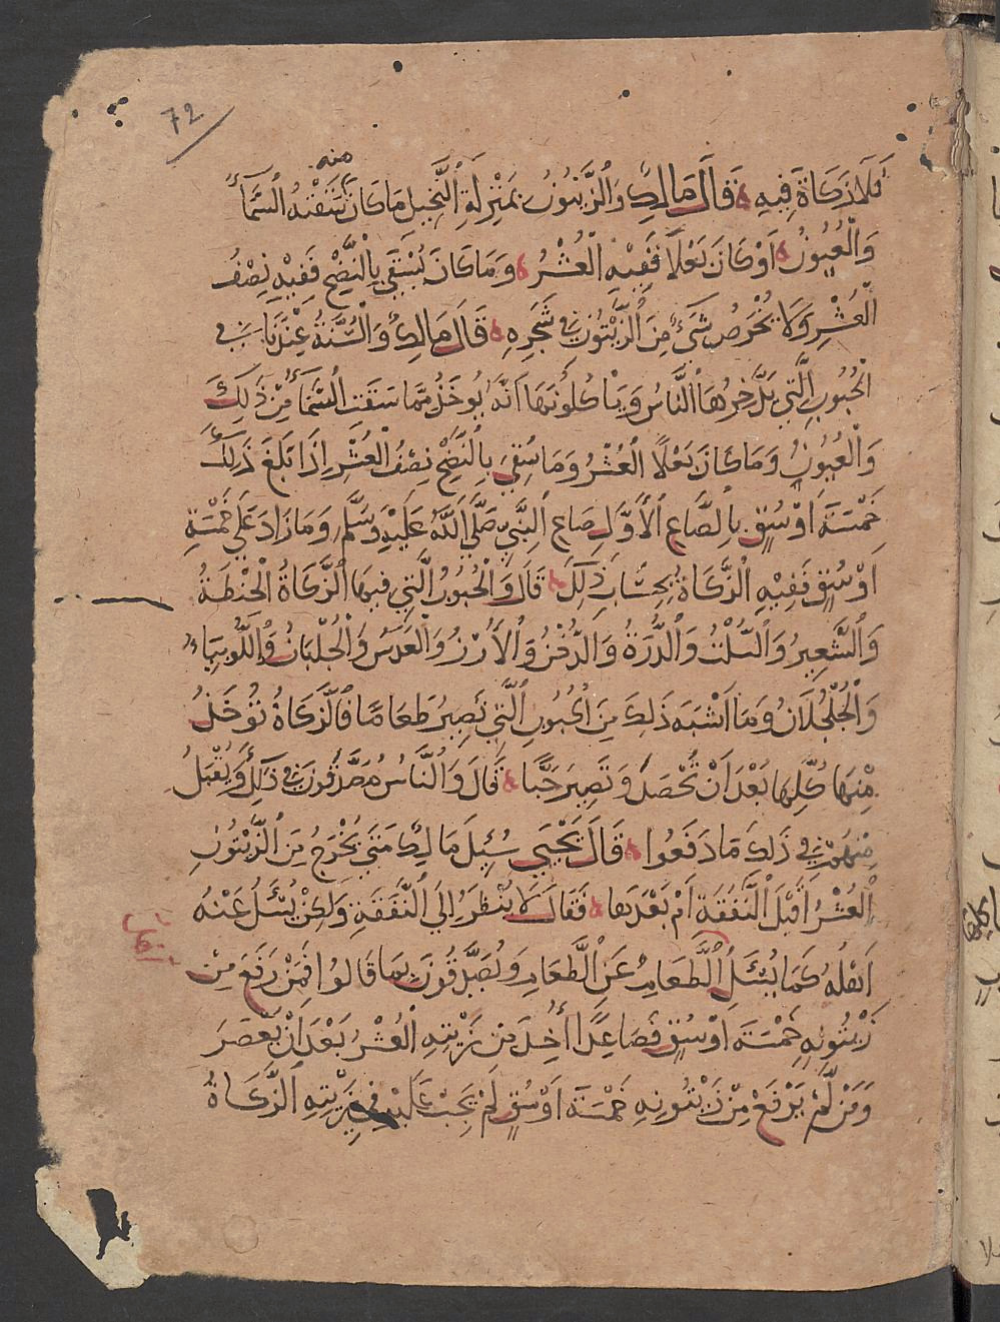 72
منه
فَلَا زَكَاةَ فِيهِ قَالَ مَالِكٌ وَالزَّيْتُونُ بِمَنْزِلَةِ النَّخِيلِ مَا كَانَ سَقَتْهُ السَّمَاءُ
وَالْعُيُونُ اَوْ كَانَ بَعْلًا فَفِيهِ الْعُشْرُ وَمَا كَانَ يُسْقَى بِالنَّضْحِ فَفِيْهِ نِصْفُ
الْعُشْرِ وَلَا يُخْرَصُ شَيْءٌ مِنَ الزَّيْتُونِ فِي شَجَرِهِ قَالَ مَالِكٌ وَالسُّنَّةُ عِنْدَنَا فِي
الْحُبُوبِ الَّتِي يَدَّخِرُهَا النَّاسُ وَيَاْكُلُونَهَا اَنَّهُ يُوخَذُ مِمَّا سَقَتِ السَّمَاءُ مِنْ ذَلِكَ
وَالْعُيُونُ وَمَا كَانَ بَعْلًا الْعُشْرُ وَمَا سُقِيَ بِالنَّضْحِ نِصْفُ الْعُشْرِ اِذَا بَلَغَ ذَلِكَ
خَمْسَةَ اَوْسُقٍ بِالصَّاعِ الْاَوَّلِ صَاعِ النَّبِيِّ صَلَّى اللَّهُ عَلَيْهِ وَسَلَّمَ وَمَا زَادَ عَلَى خَمْسَةِ
اَوْسُقٍ فَفِيْهِ الزَّكَاةُ بِحِسَابِ ذَلِكَ قَالَ وَالْحُبُوبُ الَّتِي فِيهَا الزَّكَاةُ الْحِنْطَةُ
وَالشَّعِيرُ وَالسُّلْتُ وَالذُّرَةُ وَالدُّخْنُ وَالْاَرْزُ وَالْعَدَسُ وَالْجُلْبَانُ وَاللُّوبِيَاءُ
وَالْجُلْجُلَانُ وَمَا اَشْبَهَ ذَلِكَ مِنَ الْحُبُوبِ الَّتِي تَصِيرُ طَعَامًا فَالزَّكَاةُ تُؤْخَذُ
مِنْهَا كُلِّهَا بَعْدَ اَنْ تُحْصَدَ وَتَصِيرَ حَبًّا قَالَ وَالنَّاسُ مُصَدَّقُونَ فِي ذَلِكَ وَيُقْبَلُ
مِنْهُمْ فِي ذَلِكَ مَا دَفَعُوا قَالَ يَحْيَى سُئِلَ مَالِكٌ مَتَى يُخْرَجُ مِنَ الزَّيْتُونِ
الْعُشْرُ اَقَبْلَ النَّفَقَةِ اَمْ بَعْدَهَا فَقَالَ لَا يُنْظَرُ اِلَى النَّفَقَةِ وَلَكِنْ يُسْئَلُ عَنْهُ
اَهْلُهُ كَمَا يُسْئَلُ اَهْلُ الطَّعَامِ عَنِ الطَّعَامِ وَيُصَدَّقُونَ بِمَا قَالُوا فَمَنْ رَفَعَ مِنْ
زَيْتُونِهِ خَمْسَةَ اَوْسُقٍ فَصَاعِدًا اُخِذَ مِنْ زَيْتِهِ الْعُشْرُ بَعْدَ اَنْ يُعْصَرَ
وَمَنْ لَّمْ يَرْفَعْ مِنْ زَيْتُونِهِ خَمْسَةَ اَوْسُقٍ لَمْ يَجِبْ عَلَيْهِ فِي زَيْتِهِ الزَّكَاةُ